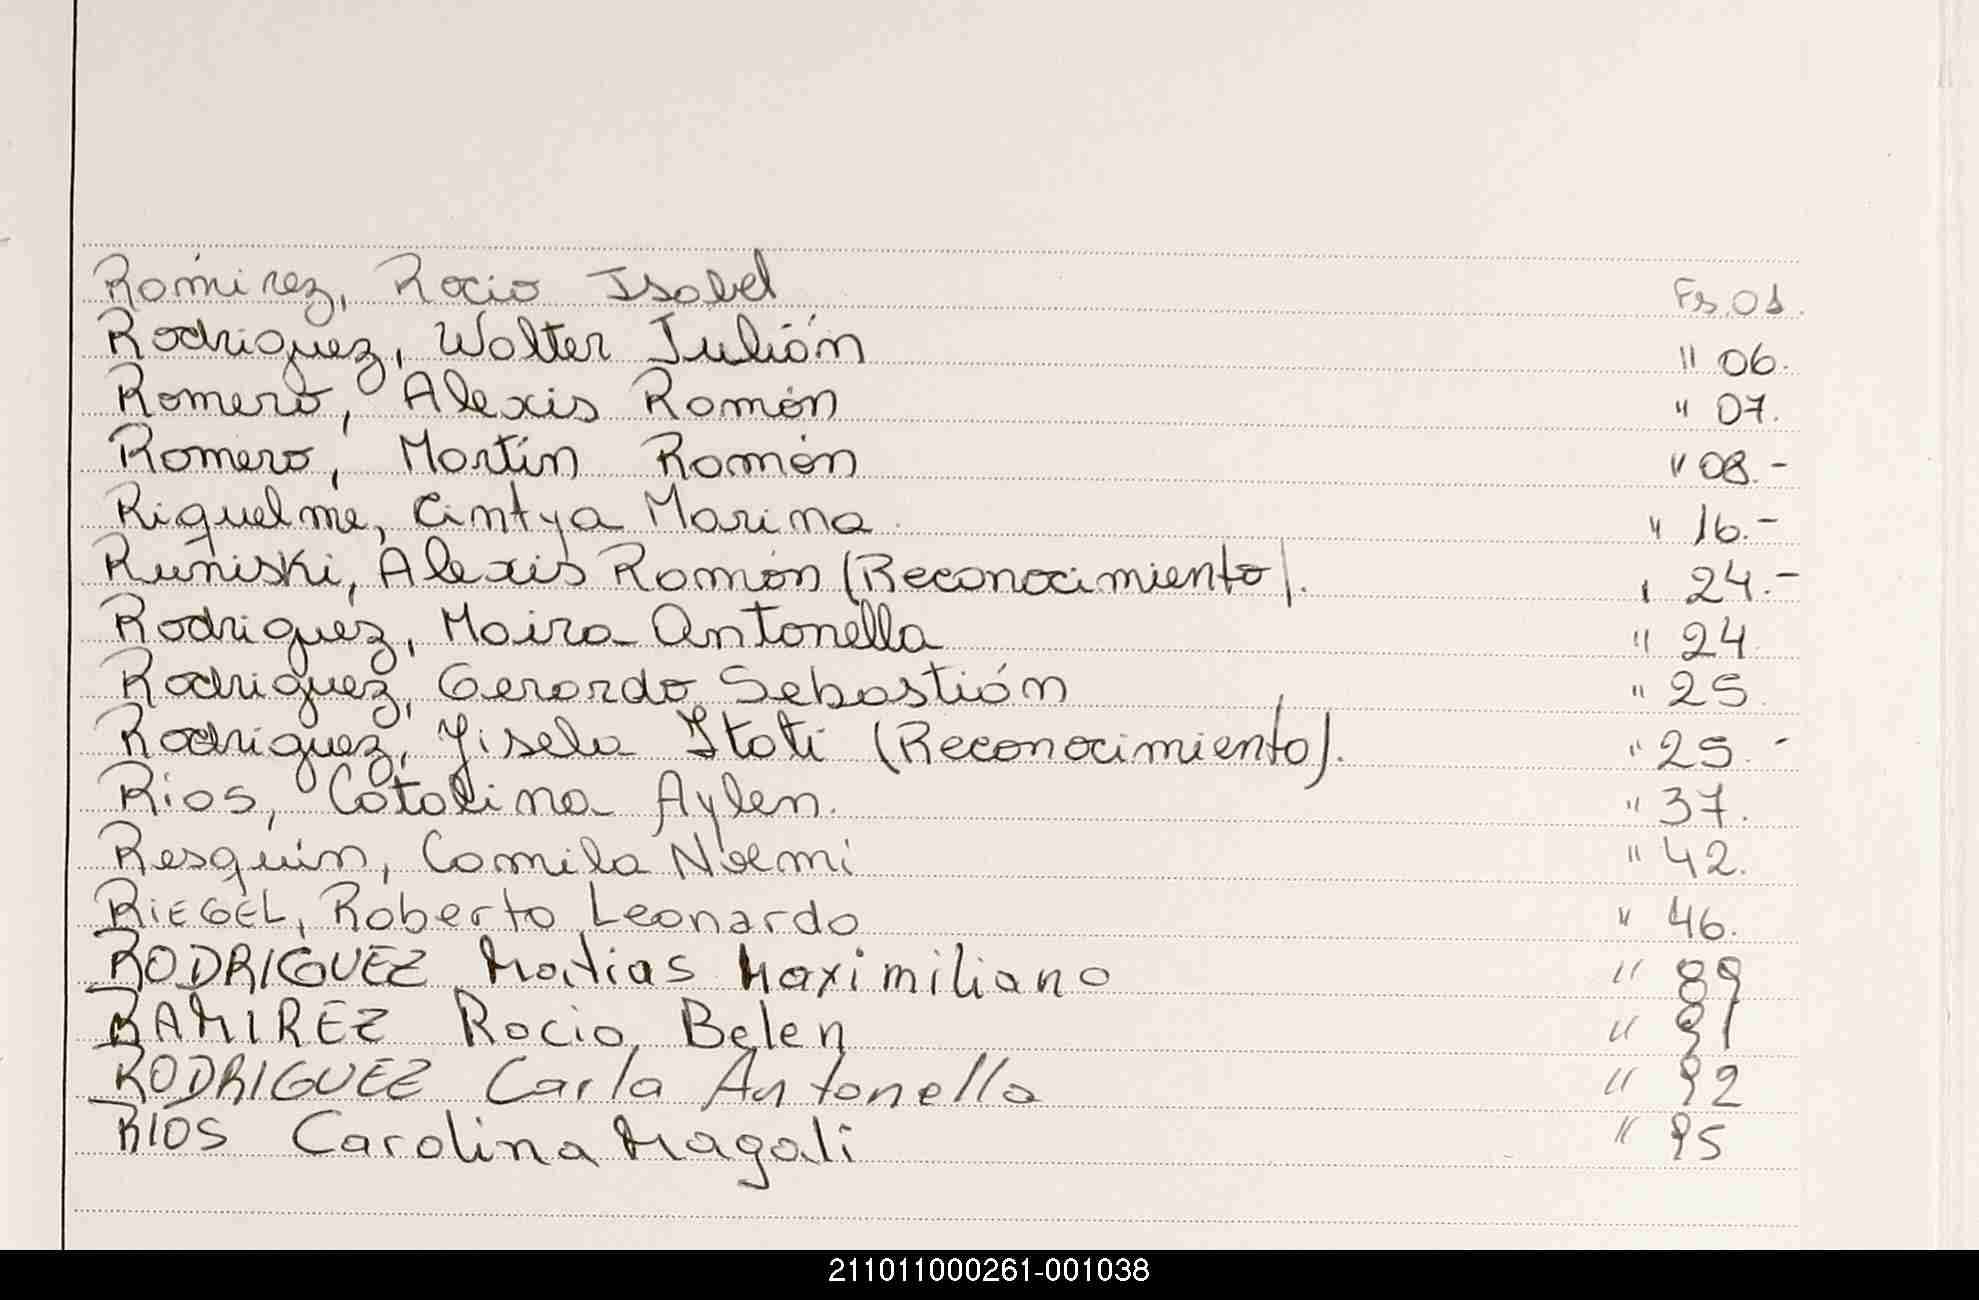 Ramirez, Rocio Isabel Fs. 01.
Rodriguez, Walter Julián " 06.
Romero, Alexis Ramón " 07.
Romero, Martín Ramón " 08.-
Riquelme, Cintya Marina " 16.-
Ruñiski, Alexis Ramón (Reconocimiento). " 24.-
Rodriguez, Maira Antonella " 24
Rodriguez, Gerardo Sebastián " 25
Rodriguez, Yisela Itati (Reconocimiento). " 25.-
Rios, Catalina Aylen. " 37.
Resquin, Camila Noemi " 42.
RIEGEL, Roberto Leonardo " 46.
RODRIGUEZ Matias Maximiliano " 89
RAMIREZ Rocio Belen " 91
RODRIGUEZ Carla Antonella " 92
RIOS Carolina Magali " 95
211011000261-001038